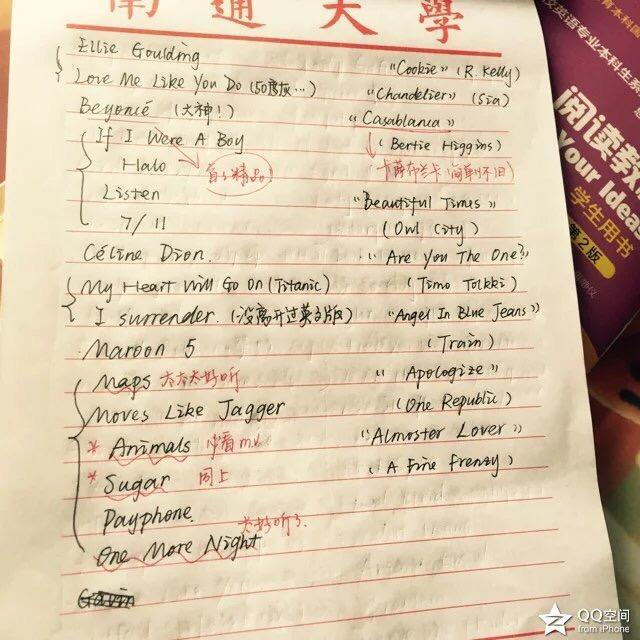 南通大學
Ellie Goulding
Love Me Like You Do (50度灰...)
Beyoncé (大神!)
If I Were A Boy
Halo
首首精品!
Listen
7/11
Céline Dion.
My Heart Will Go On (Titanic)
I surrender. (没离开过英文版)
Maroon 5
Maps 太太太好听
Moves Like Jagger
* Animals 少看mv
* Sugar 同上
Payphone.
太好听了.
One More Night
"Cookie" (R. Kelly)
"Chandelier" (Sia)
"Casablanca"
(Bertie Higgins)
卡萨布兰卡
"Beautiful Times"
(Owl City)
"Are You The One?"
(Timo Tolkki)
"Angel In Blue Jeans"
(Train)
"Apologize"
(One Republic)
"Almoster Lover"
(A Fine Frenzy)
英语专业本科生系
阅读教
Your Ideas
学生用书
第2版
QQ空间
from iPhone